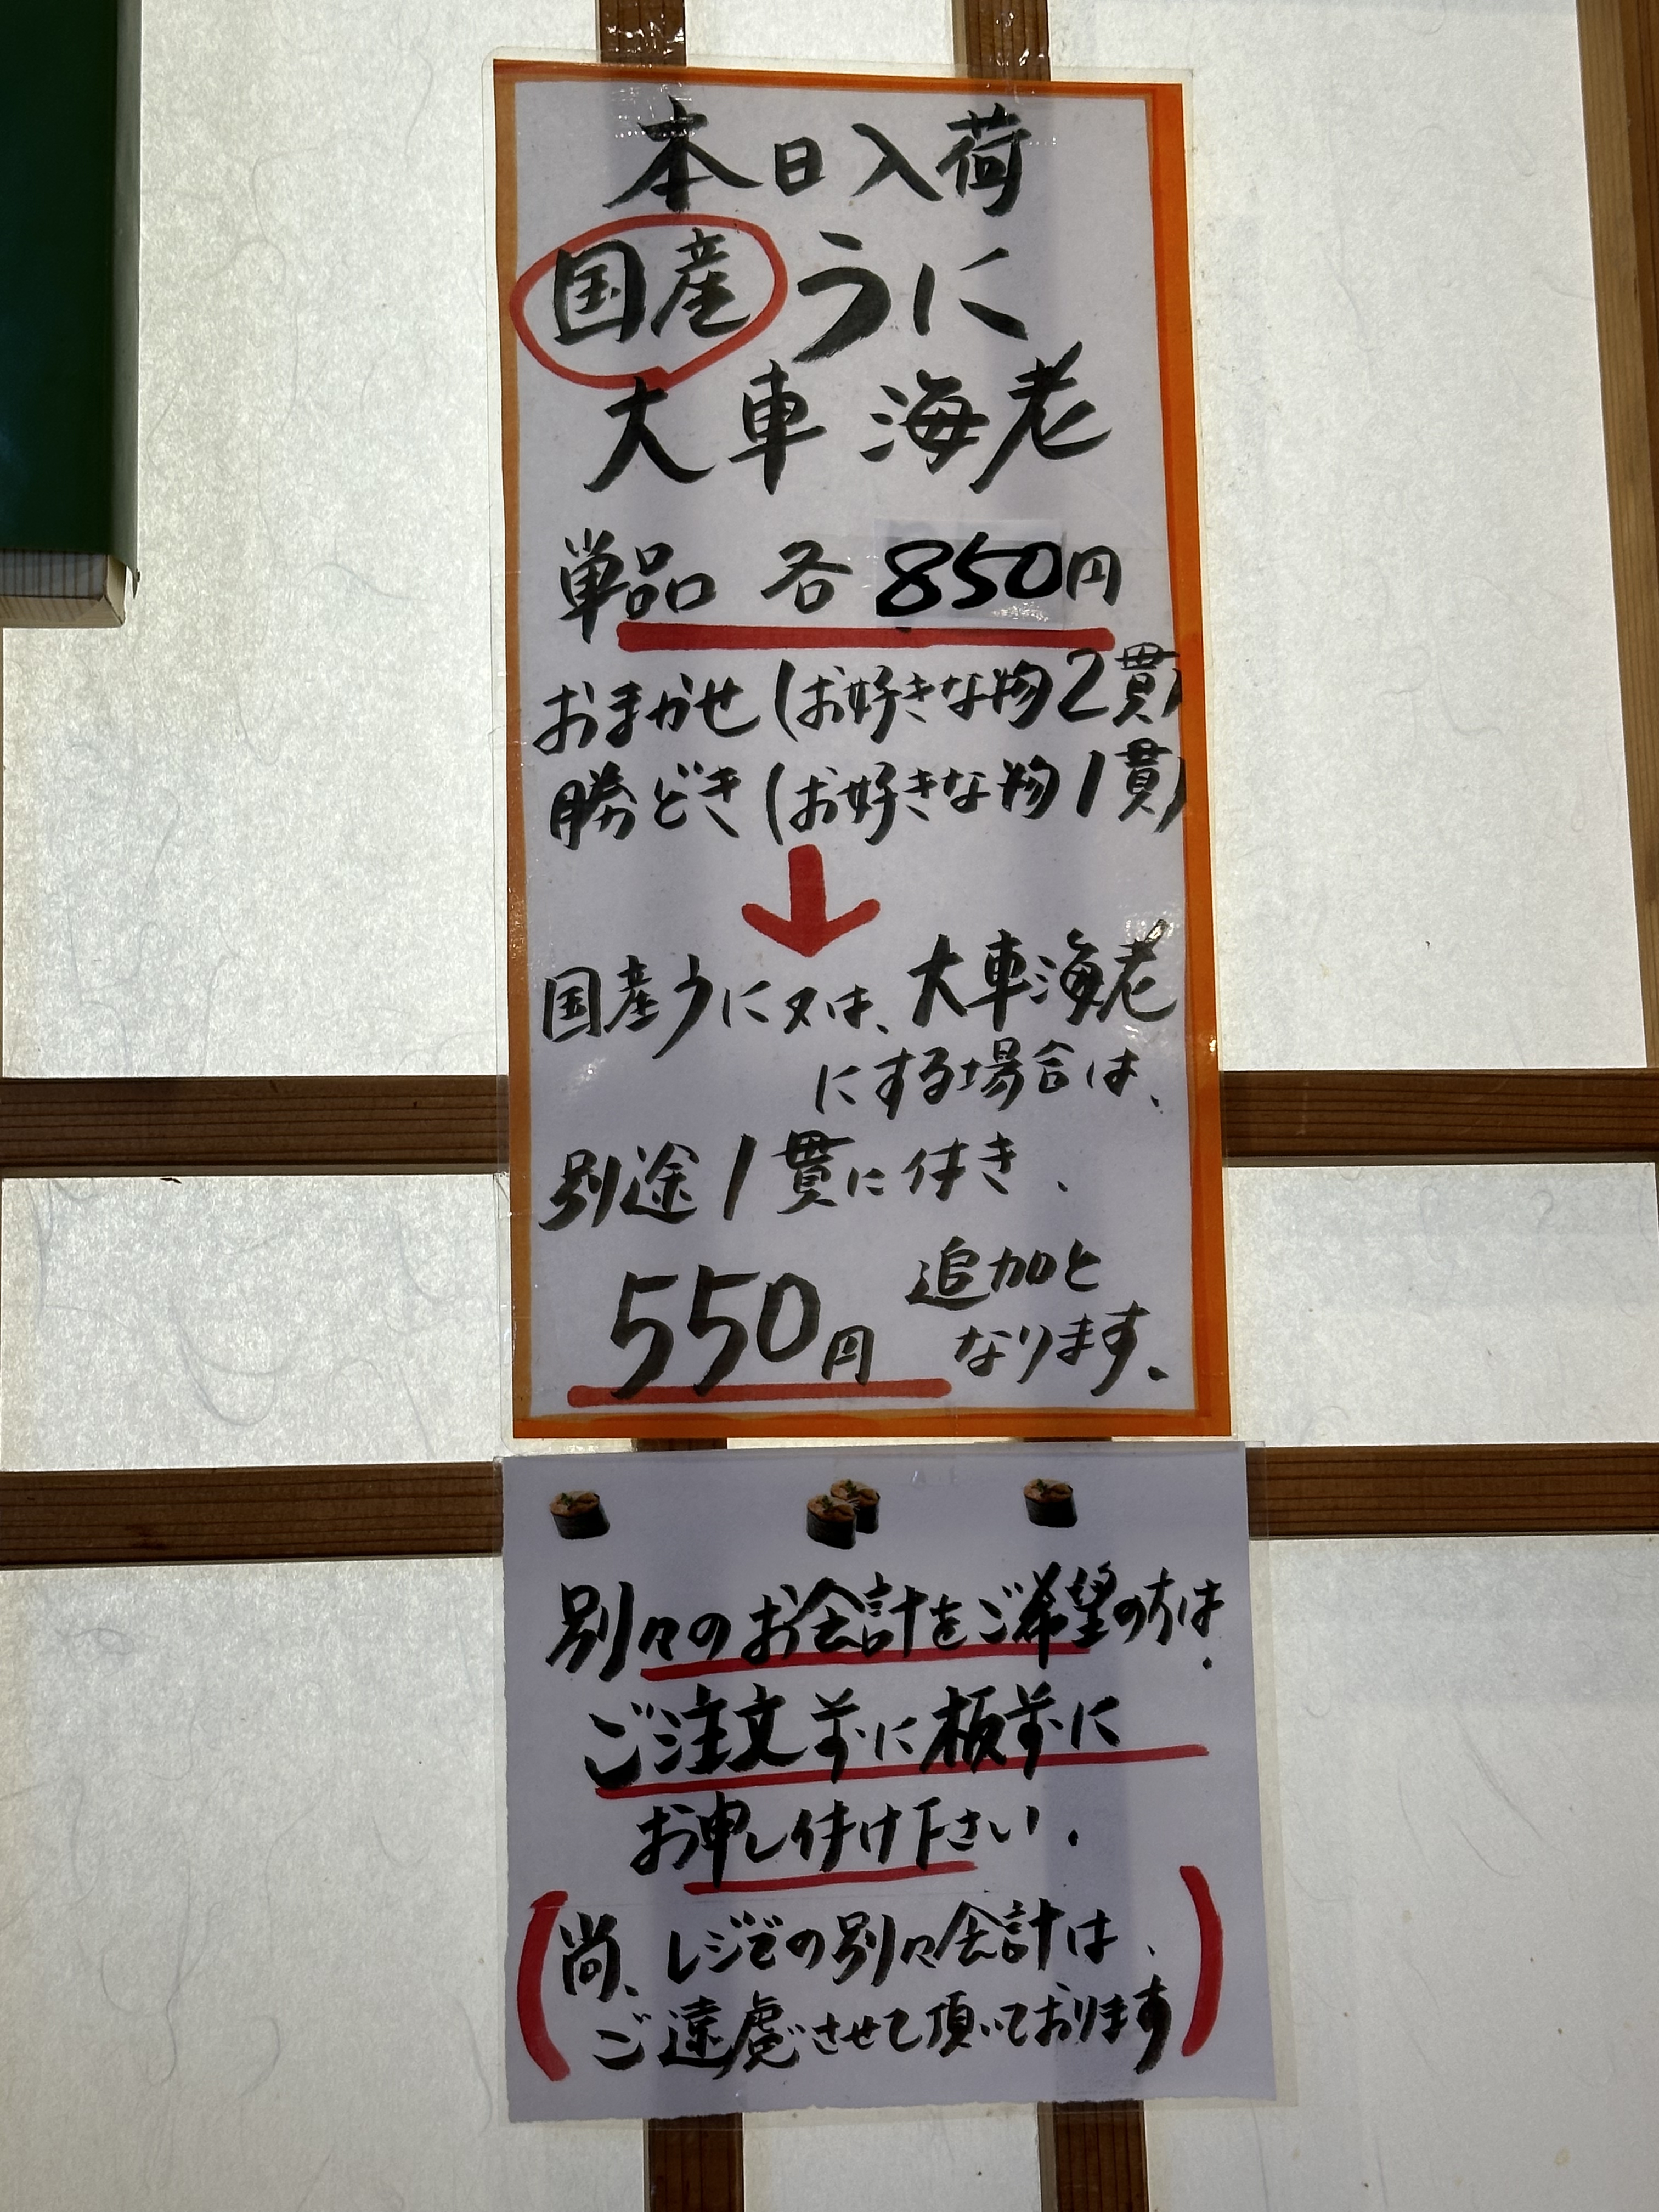 本日入荷
国産うに
大車海老
単品 各850円
おまかせ(お好きな物2貫)
勝どき(お好きな物1貫)
国産うに又は、大車海老
にする場合は、
別途1貫に付き、
550円 追加と
なります。
別々のお会計をご希望の方は、
ご注文前に板前に
お申し付け下さい。
(尚、レジでの別々会計は、
ご遠慮させて頂いております)